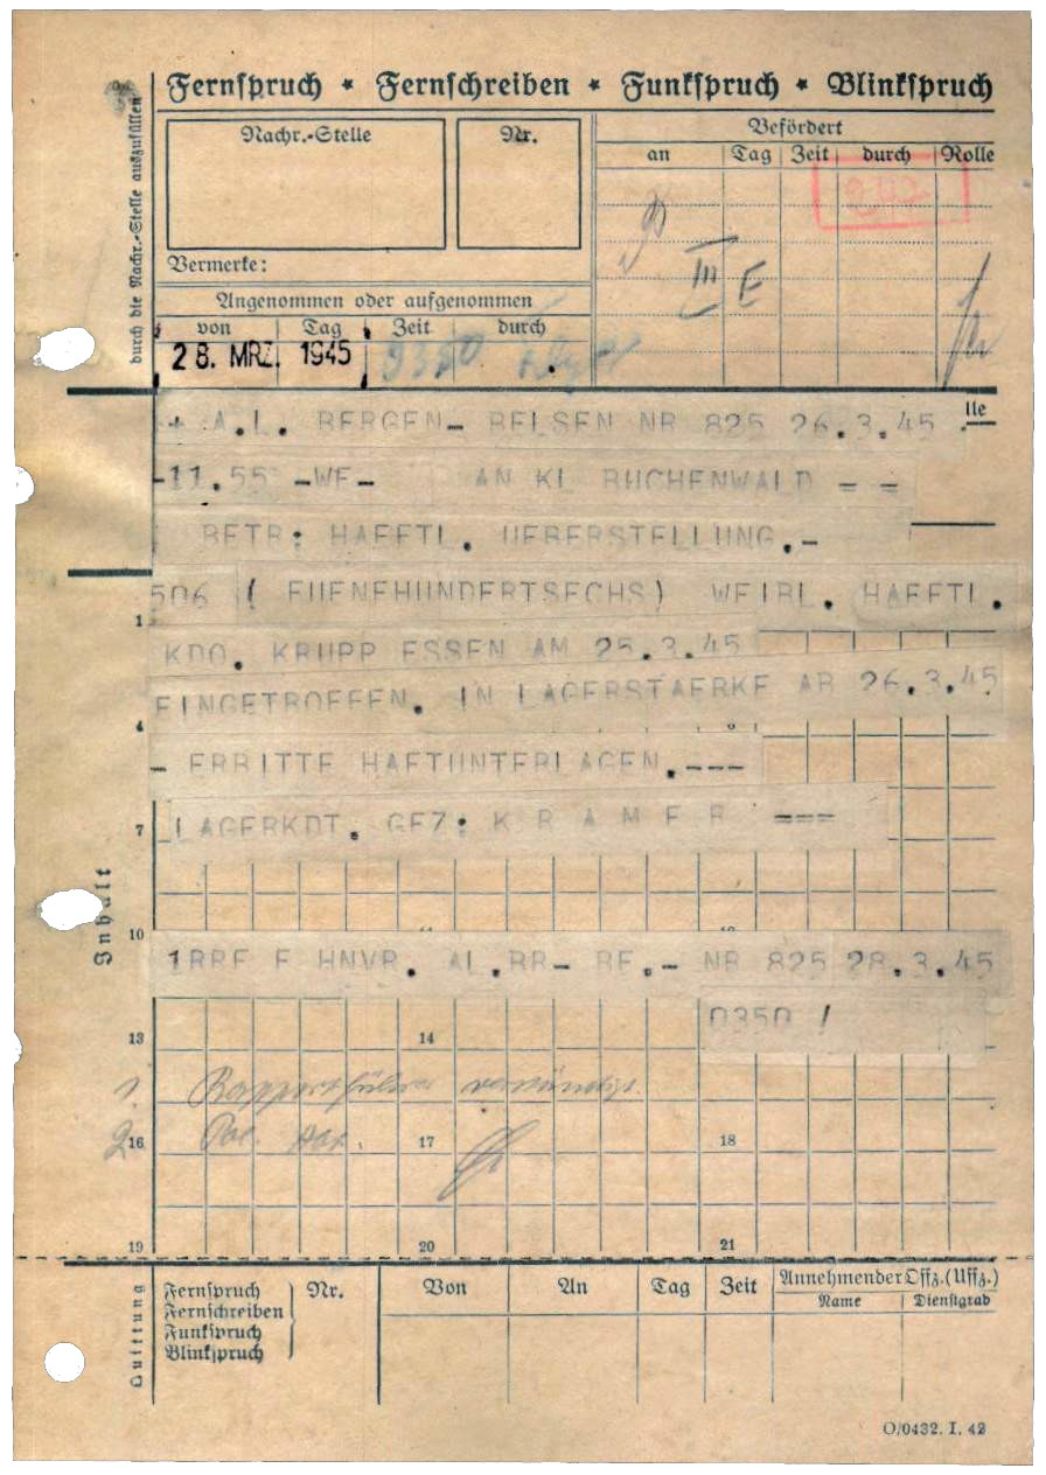 Fernspruch * Fernschreiben * Funkspruch * Blinkspruch
durch die Nachr.-Stelle auszufüllen
Nachr.-Stelle
Nr.
Befördert
an Tag Zeit durch Rolle
III E
Vermerke:
Angenommen oder aufgenommen
von Tag Zeit durch
28. MRZ. 1945 0350
+ A.L. BERGEN- BELSEN NR 825 26.3.45 .
lle
-11.55 -WE- AN KL BUCHENWALD = =
BETR: HAEFTL. UEBERSTELLUNG.-
506 ( FUENFHUNDERTSECHS) WEIBL. HAEFTL.
1
KDO. KRUPP ESSEN AM 25.3.45
EINGETROFFEN. IN LAGERSTAERKE AB 26.3.45
4
- ERBITTE HAFTUNTERLAGEN.---
LAGERKDT. GEZ: K R A M E R ===
7
Inhalt
10
1RRF F HNVR. AL.BB- BE.- NR 825 28.3.45
0350 !
13 14
1. Rapportführer
2. Pol. Abt.
16 17 18
19 20 21
Quittung
Fernspruch
Fernschreiben
Funkspruch
Blinkspruch
Nr. Von An Tag Zeit
Annehmender Offz. (Uffz.)
Name Dienstgrad
O/0432. I. 42